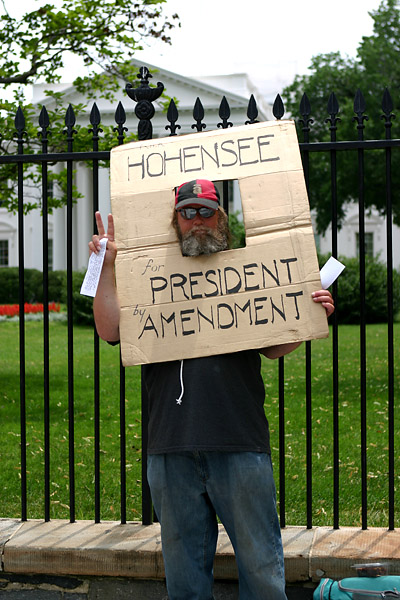 HOHENSEE
for
PRESIDENT
by AMENDMENT